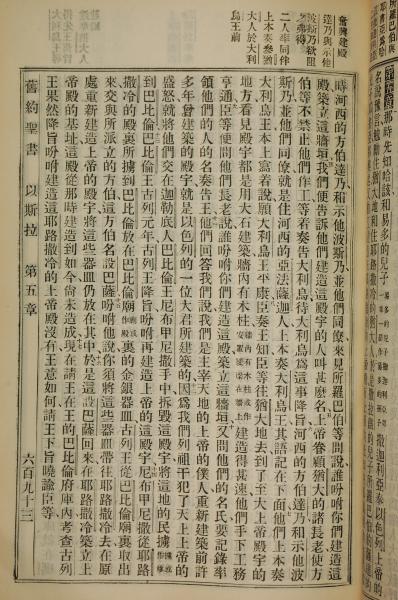 那時先知哈該和易多的兒子
奮興建殿
達乃與示他
波斯乃欲阻
之弗得
二人率同伴
上本奏參猶
大人於大利
烏王前
時河西的方伯達乃和示他波斯乃並他們同僚來見所羅巴伯等問說誰吩咐你們建這
殿築立這牆垣我們便告訴他們建造這殿宇的人叫甚麼名上帝眷顧猶大的諸長老使方
伯等不禁止他們作工等着奏告大利烏待大利烏為這事降旨河西的方伯達乃和示他波
斯乃並他們同僚就是住河西的亞法薩迦人上本奏大利烏王其語記在下面他們上本奏
大利烏王本上寫着說願大利烏王大康泰奏王知臣等往猶大地去到了至大上帝殿宇的
地方看見殿宇都是用大石建築牆內有木柱建造得甚速他們手下工務
亨通臣等便問他們長老說誰吩咐你們建造這殿築立這牆垣又問他們的名氏要記錄率
領他們的人的名奏告王他們回答我們說我們是主宰天地的上帝的僕人重新建築前許
多年曾建築的殿宇就是以色列的一位大君所建築的因為我們列祖干犯了天上上帝的
盛怒就將他們交在迦勒底人巴比倫王尼布甲尼撒手中拆毀這殿宇將這地的民擄
到巴比倫巴比倫王古列元年古列王降旨吩咐再建造上帝的殿宇尼布甲尼撒從耶路
撒冷的殿裏所擄到巴比倫放在巴比倫廟裏的金銀器皿古列王從巴比倫廟裏取出
來交與所派立的方伯這方伯名設巴薩吩咐他說你須將這些器皿帶往耶路撒冷去在原
處重新建造上帝的殿宇將這些器皿仍放在其中於是這設巴薩回來在耶路撒冷築立上
帝殿的基址這殿從那時建造到如今尚未造成現在請王在王的巴比倫府庫內考查古列
王果然降旨吩咐建造這耶路撒冷的上帝殿沒有王意如何請王下旨曉諭臣等
舊約聖書 以斯拉 第五章 六百九十三